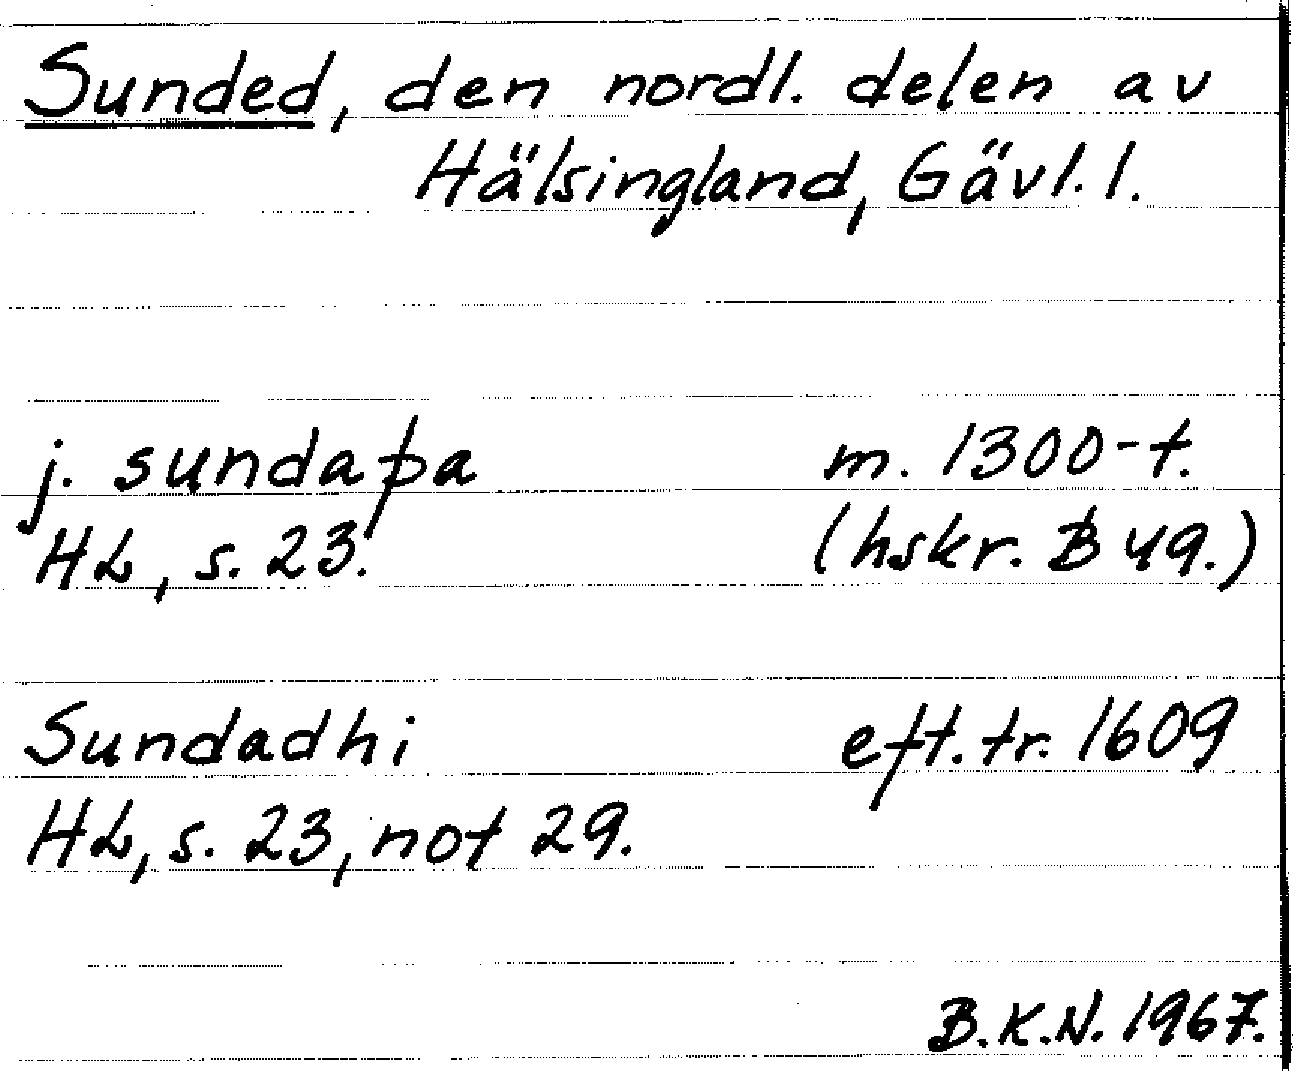 Sunded, den nordl. delen av
Hälsingland, Gävl. l.
j. sundaþa m. 1300-t.
HL, s. 23. (hskr. B 49.)
Sundadhi eft. tr. 1609
HL, s. 23, not 29.
B.K.N. 1967.